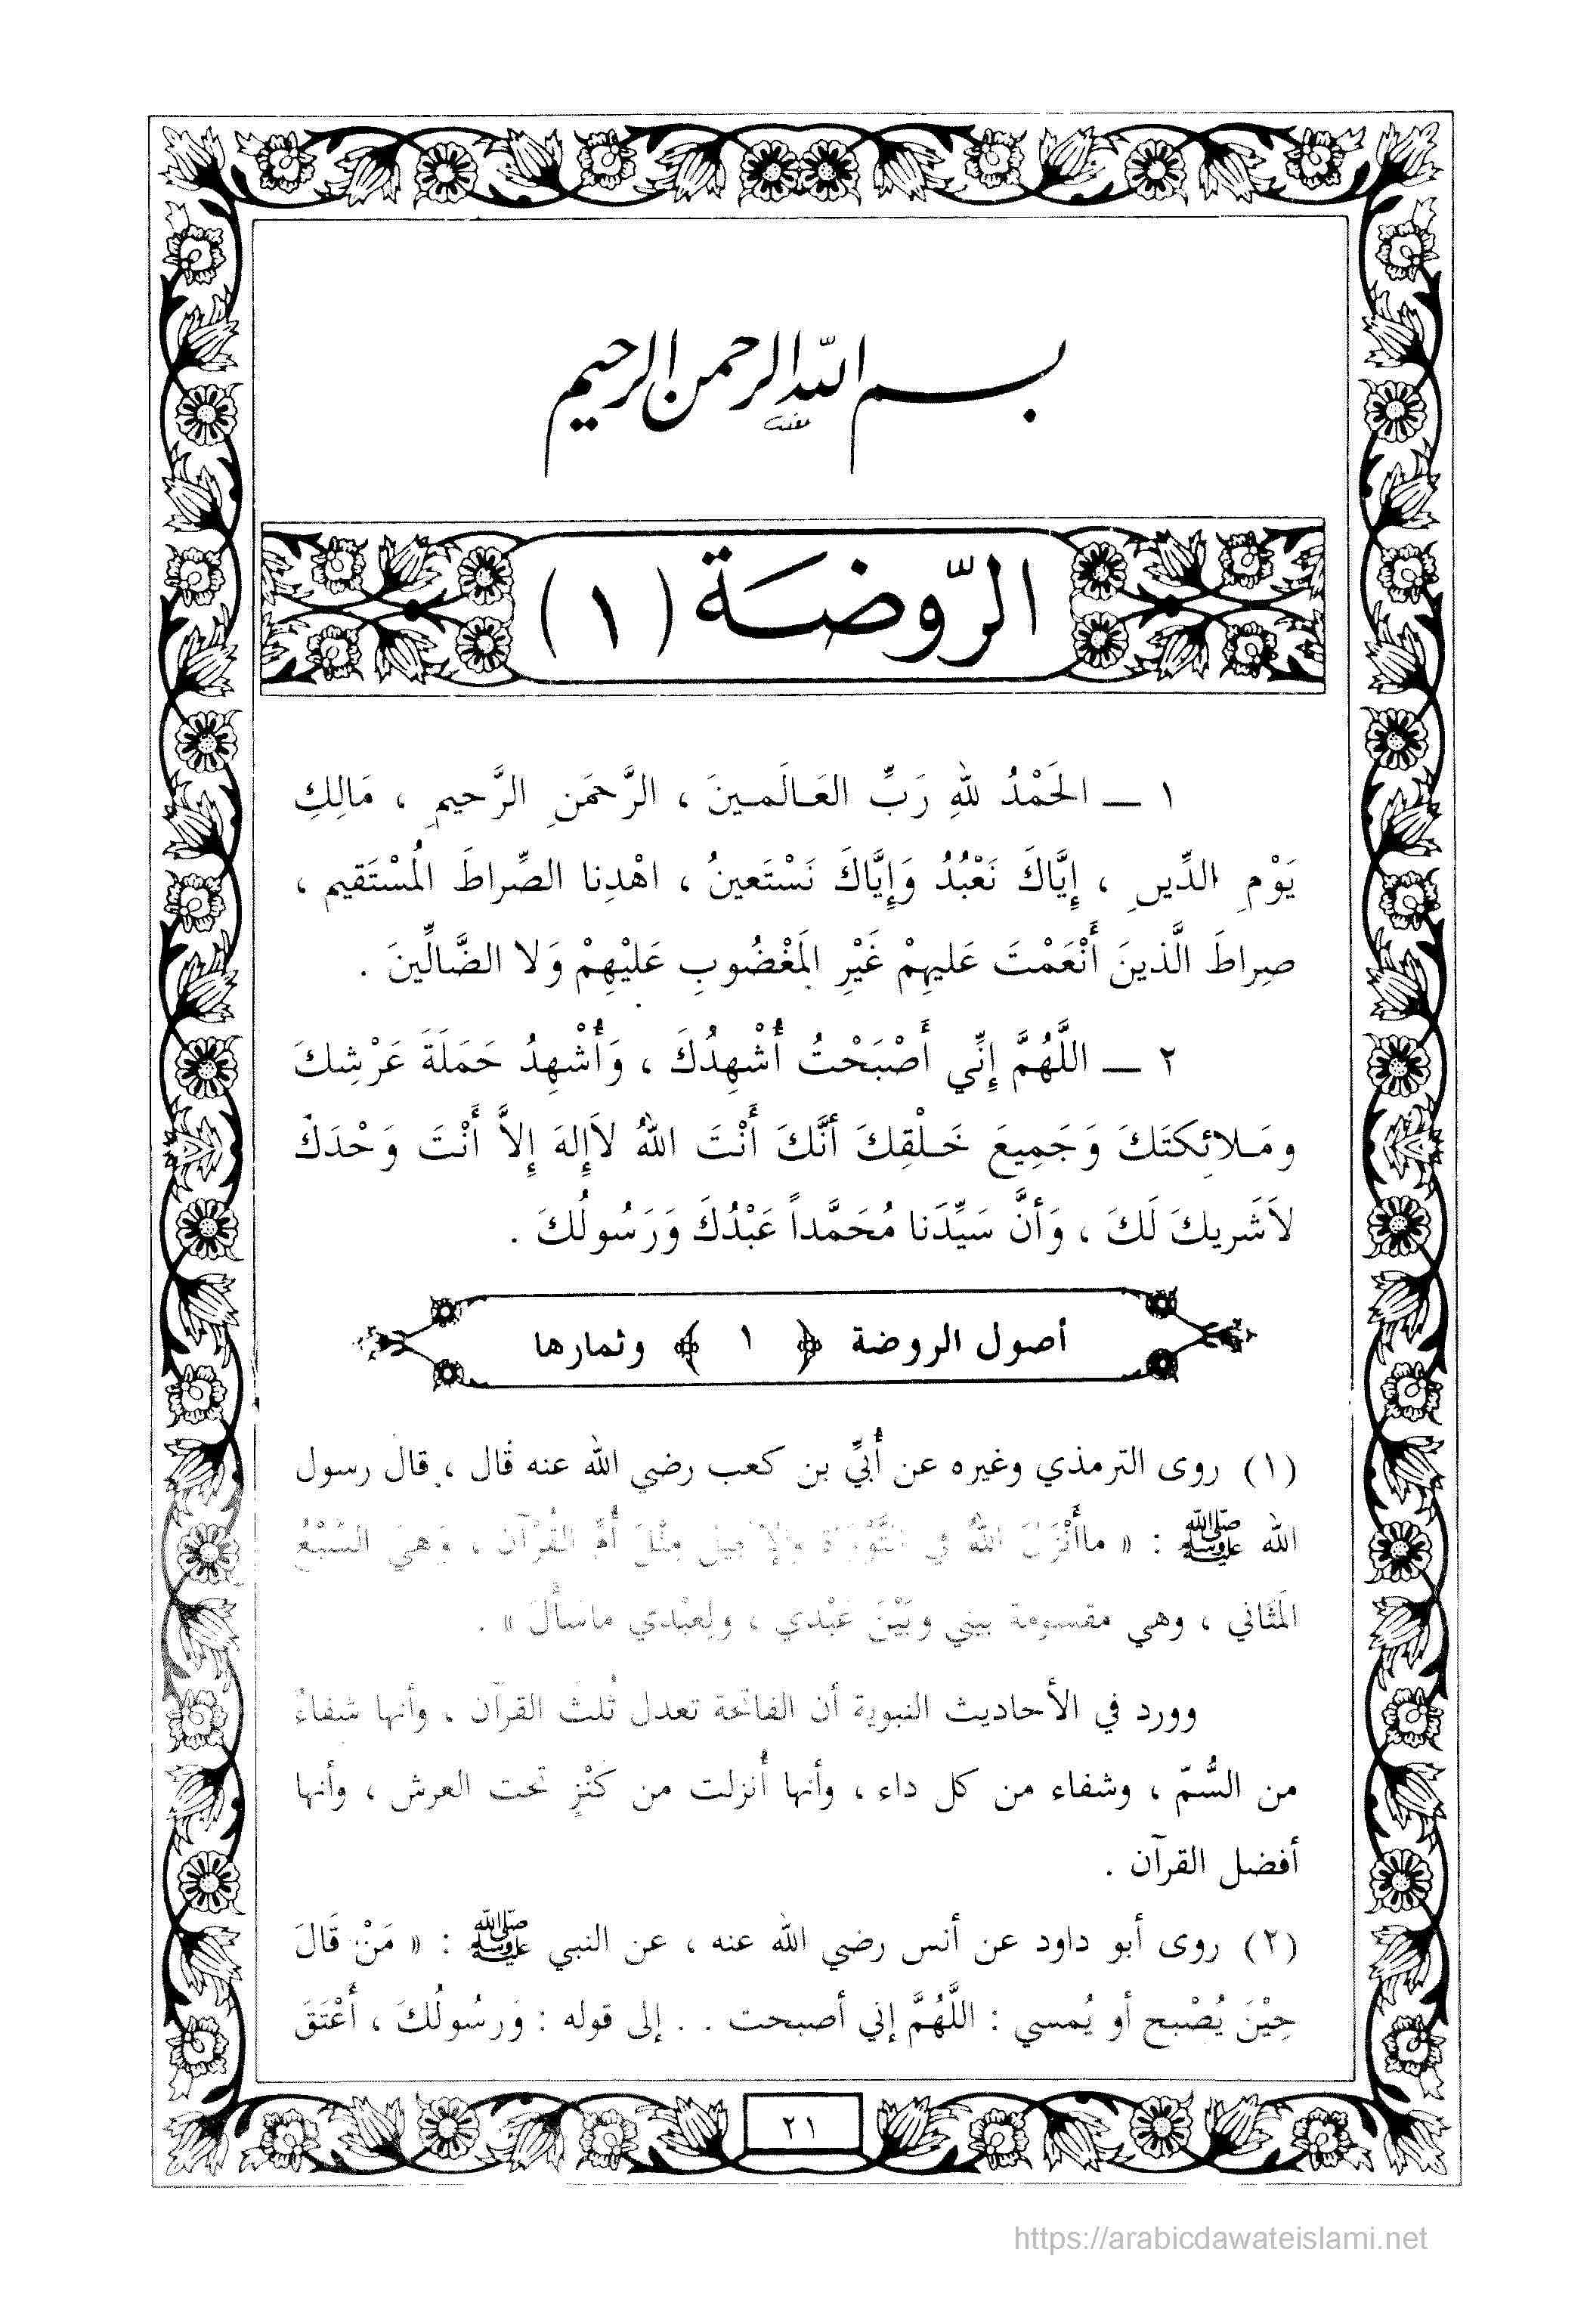 بسم الله الرحمن الرحيم
الرّوضة ( ١ )
١ ــ الحَمْدُ للهِ رَبِّ العَالَمينَ ، الرَّحمَنِ الرَّحيمِ ، مَالِكِ
يَوْمِ الدِّينِ ، إِيَّاكَ نَعْبُدُ وَإِيَّاكَ نَسْتَعينُ ، اهْدِنا الصِّراطَ المُسْتَقيم ،
صِراطَ الَّذينَ أَنْعَمْتَ عَليهِمْ غَيْرِ المَغْضُوبِ عَليْهِمْ وَلا الضَّالِّينَ .
٢ ــ اللَّهُمَّ إِنِّي أَصْبَحْتُ أُشْهِدُكَ ، وَأُشْهِدُ حَمَلَةَ عَرْشِكَ
ومَلائِكتَكَ وَجَمِيعَ خَلْقِكَ أنَّكَ أَنْتَ اللهُ لاَإِلهَ إِلاَّ أَنْتَ وَحْدَكَ
لاَشَريكَ لَكَ ، وَأنَّ سَيِّدَنا مُحَمَّداً عَبْدُكَ وَرَسُولُكَ .
أصول الروضة ﴿ ١ ﴾ وثمارها
(١) روى الترمذي وغيره عن أُبيِّ بن كعب رضي الله عنه قال ، قال رسول
الله ﷺ : « ماأَنْزَلَ اللهُ في التَّوْرَاة والإنجيل مِثْلَ أُمِّ القُرْآن ، وَهيَ السَّبْعُ
المَثَاني ، وهي مقسومة بيني وبَيْنَ عَبْدي ، ولِعبْدي ماسَأَلَ » .
وورد في الأحاديث النبوية أن الفاتحة تعدل ثُلثَ القرآن ، وأنها شفاءٌ
من السُّمّ ، وشفاء من كل داء ، وأنها أُنزلت من كَنْزٍ تحت العرش ، وأنها
أفضل القرآن .
(٢) روى أبو داود عن أنس رضي الله عنه ، عن النبي ﷺ : « مَنْ قَالَ
حِيْنَ يُصْبح أو يُمسي : اللَّهُمَّ إني أصبحت . . إلى قوله : وَرسُولُكَ ، أَعْتَقَ
٢١
https://arabicdawateislami.net